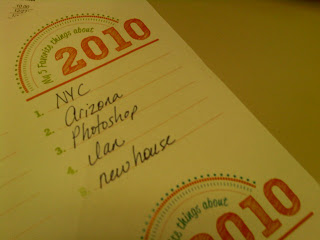 My 5 Favorite things about
2010
1. NYC
2. Arizona
3. Photoshop
4. Ilan
5. new house
things about
2010